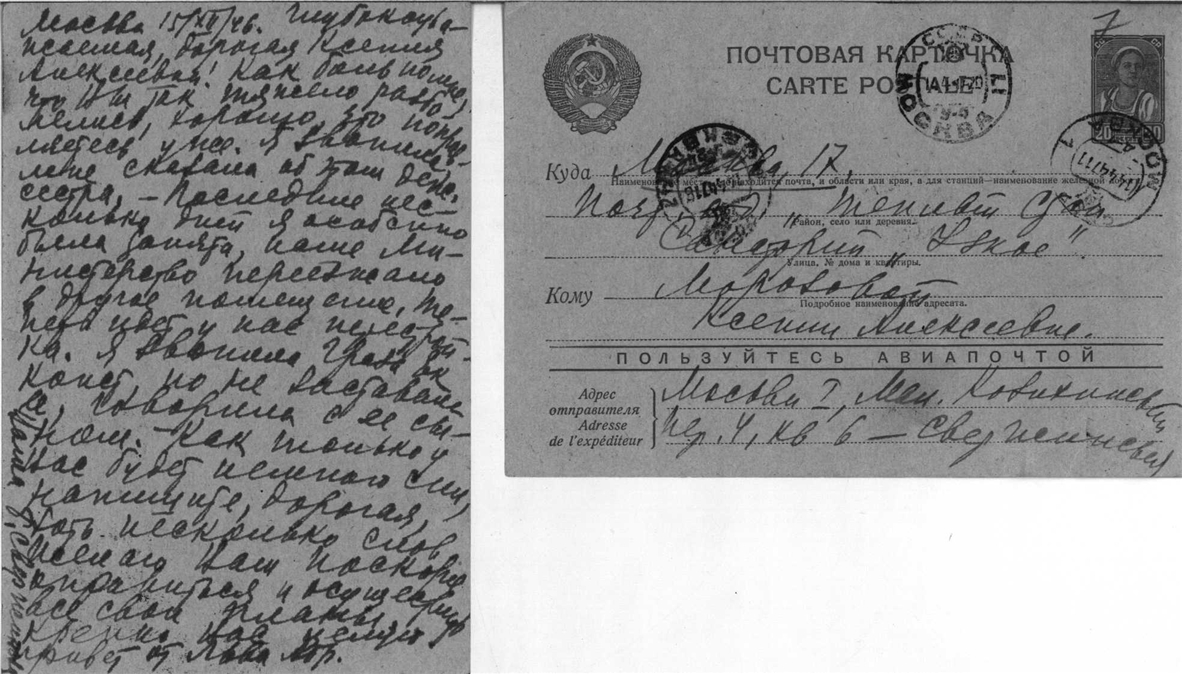 Москва 15/XII/46. Глубокоува-
жаемая, дорогая Ксения
Алексеевна! Как больно мне,
что Вы так тяжело разбо-
лелись, хорошо, что поправ-
ляетесь уже. Я звонила
мне сказала об этом
сестра, – Последние нес-
колько дней я особенно
была занята, наше Ми-
нистерство переезжало
в другое помещение, те-
перь идет у нас перестрой-
ка. Я звонила
но не застала
говорила с ее сы-
ном. – Как только у
Вас будет немного сил,
напишите, дорогая,
хоть несколько слов
Желаю Вам поскорее
оправиться и осуществить
все свои планы.
крепко Вас целую,
привет от
ПОЧТОВАЯ КАРТОЧКА
CARTE POS
МОСКВА 17
Куда Москва, 17,
Наименование места, где находится почта, и области или края, а для станций—наименование железной дор.
„Теплый Стан
Район, село или деревня.
Санаторий „Узкое"
Улица, № дома и квартиры.
Кому Морозовой
Подробное наименование адресата.
Ксении Алексеевне.
ПОЛЬЗУЙТЕСЬ АВИАПОЧТОЙ
Адрес
отправителя
Adresse
de l'expéditeur
Москва I, Мал. Ковихинский
пер. 4, кв 6 –